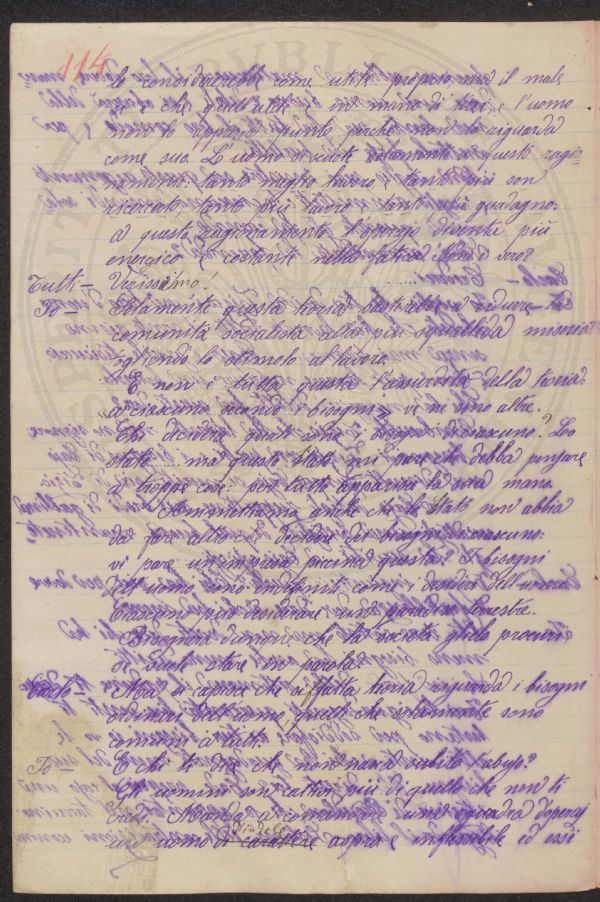 114
lo considererebbe come utile proprio, ma il male
si è che quell'utile è in mano di terzi, e l'uomo
non lo apprezza punto, perchè non lo riguarda
come suo. L'uomo si scuote solamente a questi ragio-
namenti: tanto meglio lavoro, e tanto più son
ricercato, tanto più lavoro e tanto più guadagno:
a questo ragionamento l'operajo diventa più
energico e costante nella fatica. Non è vero?
Tutti — Verissimo!
Io — Solamente questa teoria basterebbe a ridurre la
comunità socialista alla più squallida miseria
togliendo lo stimolo al lavoro.
E non è tutta questa l'assurdità della teoria:
a ciascuno secondo i bisogni, vi ne sono altre.
Chi deciderà quali sono i bisogni di ciascuno? Lo
stato .... ma questo Stato mi pare che debba pensare
a troppe cose: per tutti apparirà la sua mano.
Ammettiamo anche che lo Stato non abbia
da fare altro che decidere dei bisogni di ciascuno:
vi pare un'impresa piccina questa? I bisogni
dell'uomo sono indefiniti come i desideri dell'uomo
Ciascuno può desiderare un paradiso terrestre.
Bisognerà dunque che la società glielo procuri,
se vuole stare in parola.
— Ma si capisce che siffatta teoria riguarda i bisogni
ordinari dell'uomo, quelli che solamente sono
comuni a tutti.
Io — E chi ti dice che non nasca subito l'abuso?
Gli uomini son cattivi più di quello che non ti
credi. Manda a comandare una squadra d'operai
un uomo di carattere aspro e inflessibile ed essi